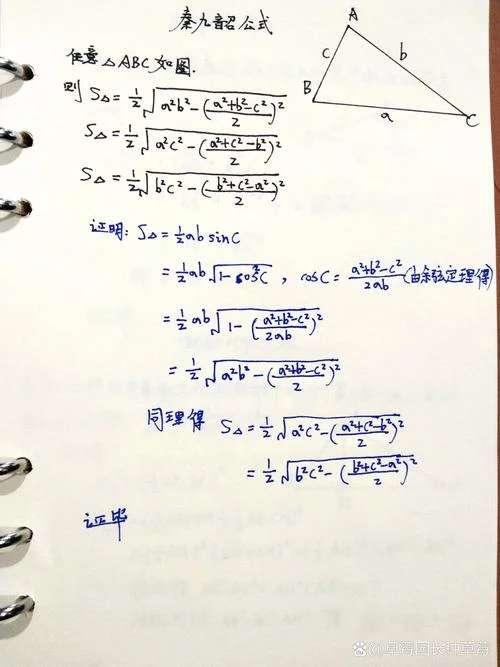 秦九韶公式
任意△ABC如图.
则 S△=½√(a²b²-((a²+b²-c²)/2)²)
S△=½√(a²c²-((a²+c²-b²)/2)²)
S△=½√(b²c²-((b²+c²-a²)/2)²)
A
B
C
c
b
a
证明: S△=½absinC
=½ab√(1-cos²C), cosC=(a²+b²-c²)/2ab (由余弦定理得)
=½ab√(1-((a²+b²-c²)/2ab)²)
=½√(a²b²-((a²+b²-c²)/2)²)
同理得 S△=½√(a²c²-((a²+c²-b²)/2)²)
=½√(b²c²-((b²+c²-a²)/2)²)
证毕